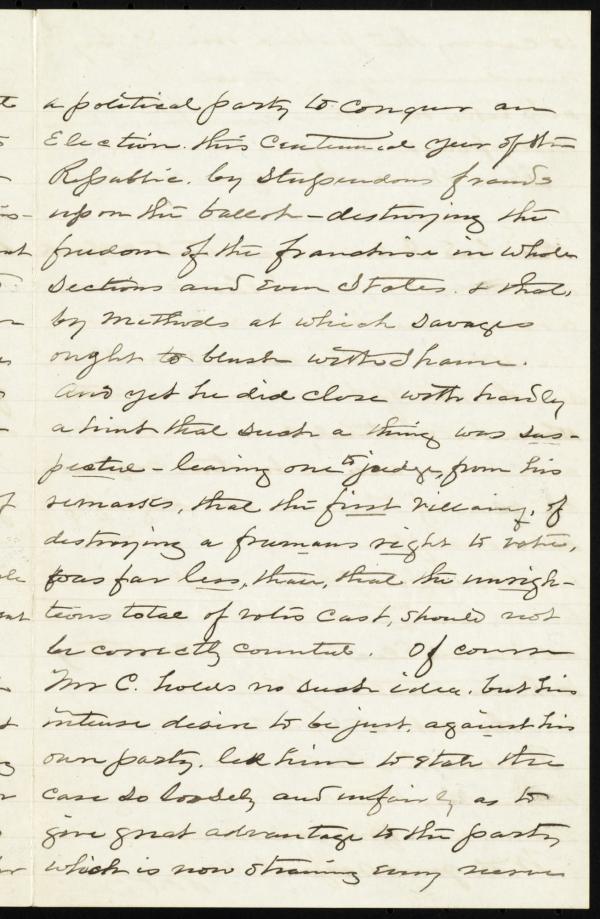 a political party to conquer an
Election. this Centennial year of the
Republic. by Stupendous frauds
upon the ballot – destroying the
freedom of the franchise in whole
Sections and Even States. & that,
by Methods at which Savages
ought to blush with Shame.
And yet he did close with hardly
a hint that such a thing was sus-
pected – leaving one to judge, from his
remarks, that the first villainy, of
destroying a freemans right to vote,
was far less, than, that the unrigh-
teous total of votes cast, should not
be correctly counted. Of course
Mr C. holds no such idea. but his
intense desire to be just, against his
own party. led him to state the
case so loosely and unfairly as to
give great advantage to the party
which is now straining every nerve